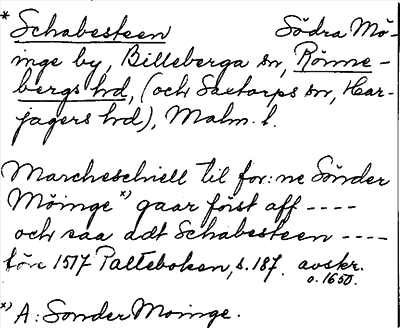 * Schabesteen Södra Mö-
inge by, Billeberga sn, Rönne-
bergs hd, (och Saxtorps sn, Har-
jagers hd), Malm. l.
Marcheschiell til for:ne Sönder
Möinge x) gaar först aff ----
och saa adt Schabesteen ----
före 1517 Palteboken, s. 187. avskr.
o. 1650.
x) A: Sonder Moinge.